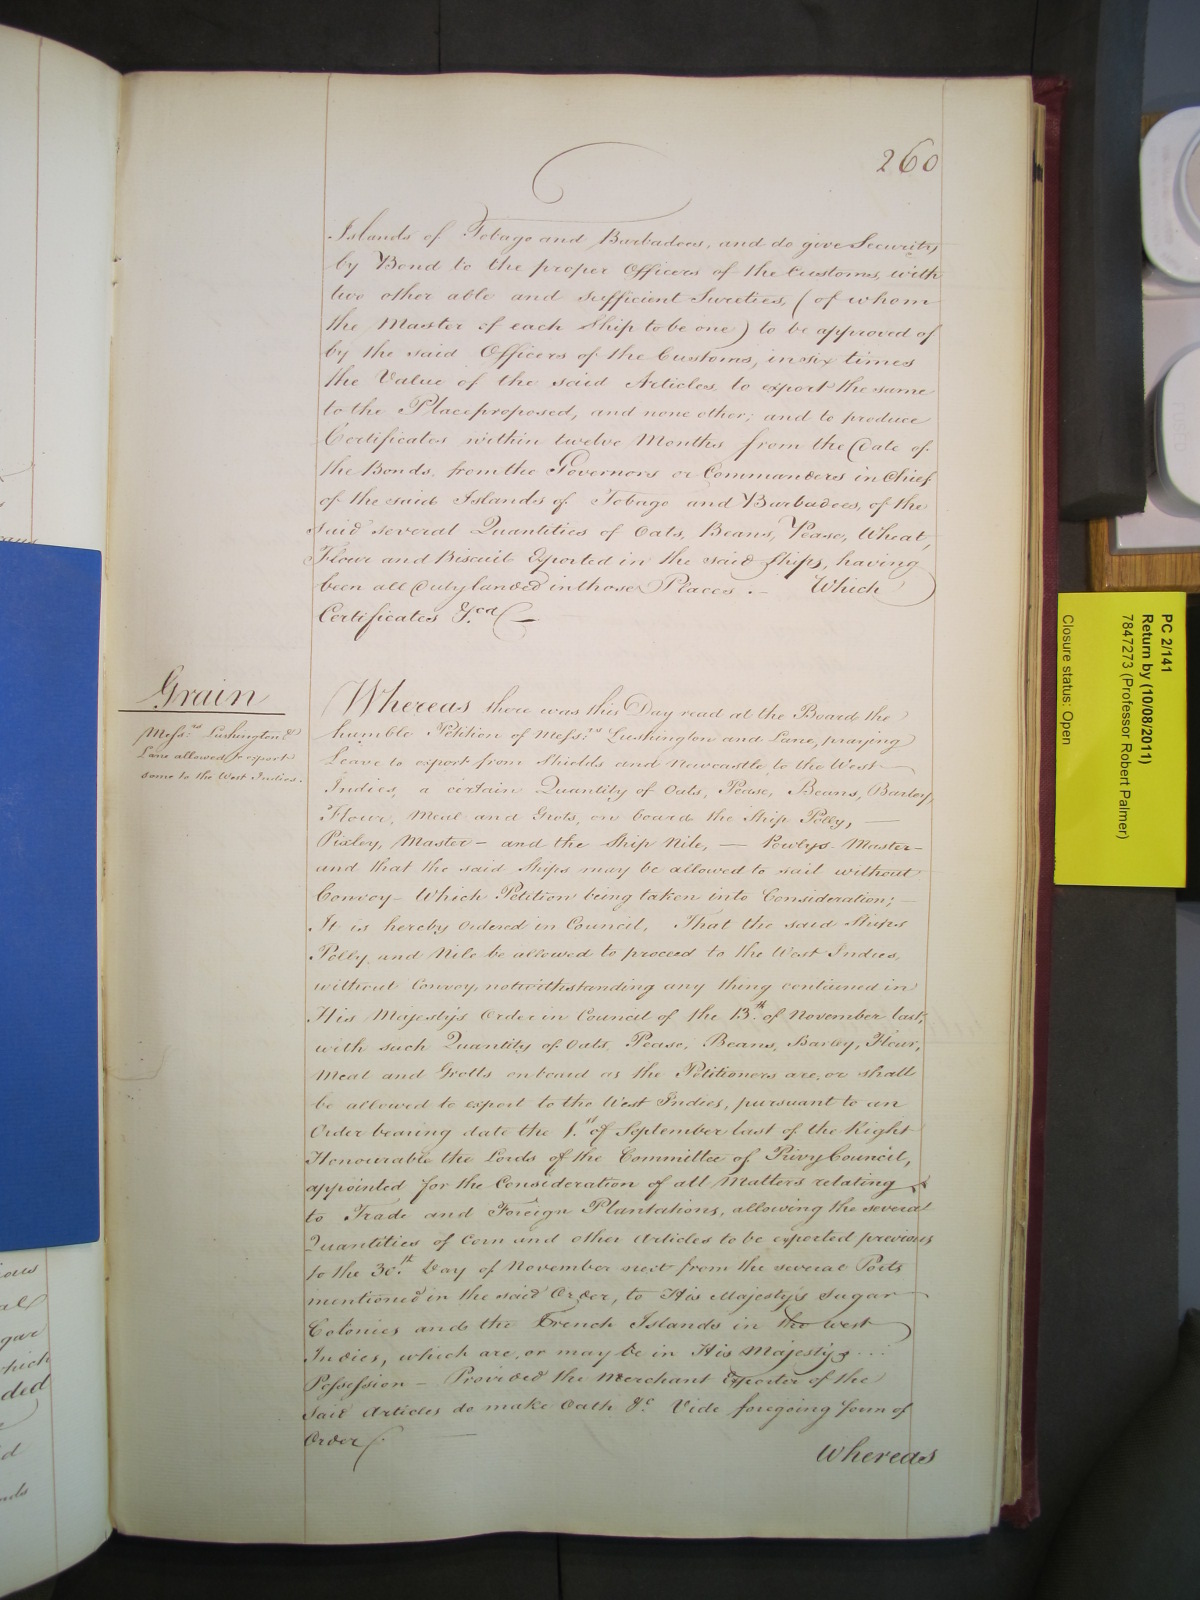 260
Islands of Tobago and Barbadoes, and do give Security
by Bond to the proper Officers of the Customs, with
two other able and sufficient Sureties, (of whom
the Master of each Ship to be one) to be approved of
by the said Officers of the Customs, in six times
the Value of the said Articles to export the same
to the Place proposed, and none other; and to produce
Certificates within twelve Months from the Date of
the Bonds from the Governors or Commanders in Chief
of the said Islands of Tobago and Barbadoes, of the
said several Quantities of Oats, Beans, Pease, Wheat,
Flour and Biscuit Exported in the said Ships, having
been all Duly landed in those Places. — Which
Certificates &ca
Grain
Messrs. Lushington &
Lane allowed to export
some to the West Indies.
Whereas there was this Day read at the Board the
humble Petition of Messrs. Lushington and Lane, praying
Leave to export from Shields and Newcastle to the West
Indies, a certain Quantity of Oats, Pease, Beans, Barley,
Flour, Meal and Grots, on board the Ship Polly, —
Pixley, Master — and the Ship Nile, — Powlys Master —
and that the said Ships may be allowed to sail without
Convoy — Which Petition being taken into Consideration; —
It is hereby Ordered in Council, That the said Ships
Polly and Nile be allowed to proceed to the West Indies,
without Convoy, notwithstanding any thing contained in
His Majesty's Order in Council of the 13th. of November last,
with such Quantity of Oats, Pease, Beans, Barley, Flour,
Meal and Grotts on board as the Petitioners are, or shall
be allowed to export to the West Indies, pursuant to an
Order bearing date the 1st. of September last of the Right
Honourable the Lords of the Committee of Privy Council,
appointed for the Consideration of all Matters relating
to Trade and Foreign Plantations, allowing the several
Quantities of Corn and other Articles to be exported previous
to the 30th. Day of November next from the several Ports
mentioned in the said Order, to His Majesty's Sugar
Colonies and the French Islands in the West
Indies, which are, or may be in His Majesty's ...
Possession — Provided the Merchant Exporter of the
said Articles do make Oath &c. Vide foregoing form of
Order
Whereas
PC 2/141
Return by (10/08/2011)
7847273 (Professor Robert Palmer)
Closure status: Open